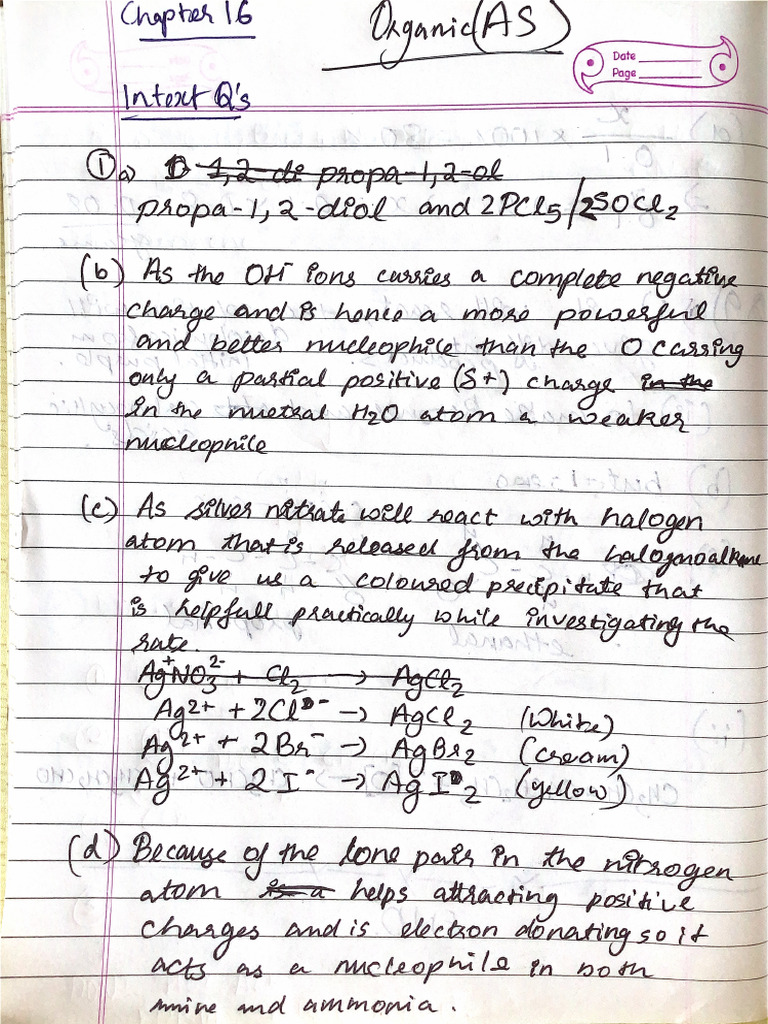 Chapter 16
Organic (AS)
Date
Page
Intext Q's
① a) 1,2-di propa-1,2-ol
propa-1,2-diol and 2PCl5/2SOCl2
(b) As the OH⁻ ions carries a complete negative
charge and is hence a more powerful
and better nucleophile than the O carring
only a partial positive (S+) charge in the
in the nuetral H2O atom a weaker
nucleophile
(c) As silver nitrate will react with halogen
atom that is released from the halognoalkane
to give us a coloured precipitate that
is helpfull practically while investigating the
rate.
Ag⁺NO3²⁻ + Cl2 → AgCl2
Ag²⁺ + 2Cl⁻ → AgCl2 (White)
Ag²⁺ + 2Br⁻ → AgBr2 (cream)
Ag²⁺ + 2I⁻ → AgI2 (yellow)
(d) Because of the lone pair in the nitrogen
atom is a helps attracting positive
charges and is electron donating so it
acts as a nucleophile in both
amine and ammonia.